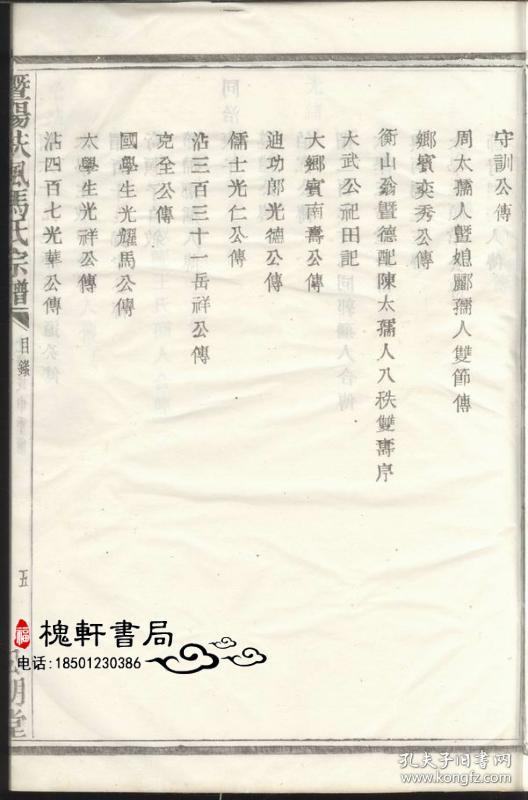 守訓公傳
周太孺人暨媳酈孺人雙節傳
鄉賓奕秀公傳
衡山翁暨德配陳太孺人八秩雙壽序
大武公祀田記
大鄉賓南壽公傳
迪功郎光德公傳
儒士光仁公傳
沾三百三十一岳祥公傳
克全公傳
國學生光耀馬公傳
太學生光祥公傳
沾四百七光華公傳
暨陽扶風馬氏宗譜
目錄
五
明堂
福
槐軒書局
电话:18501230386
孔夫子旧书网
www.kongfz.com